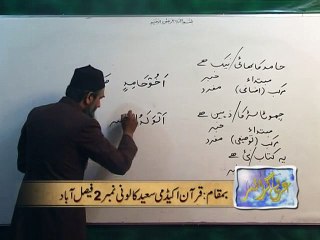 بسم اللہ الرحمن الرحیم
حامد کا بھائی / نیک ہے
اَخُوْ حَامِدٍ
مبتداء خبر
مرکب (اضافی) مفرد
چھوٹا لڑکا / ذہین ہے
اَلْوَلَدُ
مبتداء خبر
مرکب (توصیفی) مفرد
یہ کتاب / نئی ہے
عربی گرامر
بمقام: قرآن اکیڈمی سعید کالونی نمبر 2 فیصل آباد